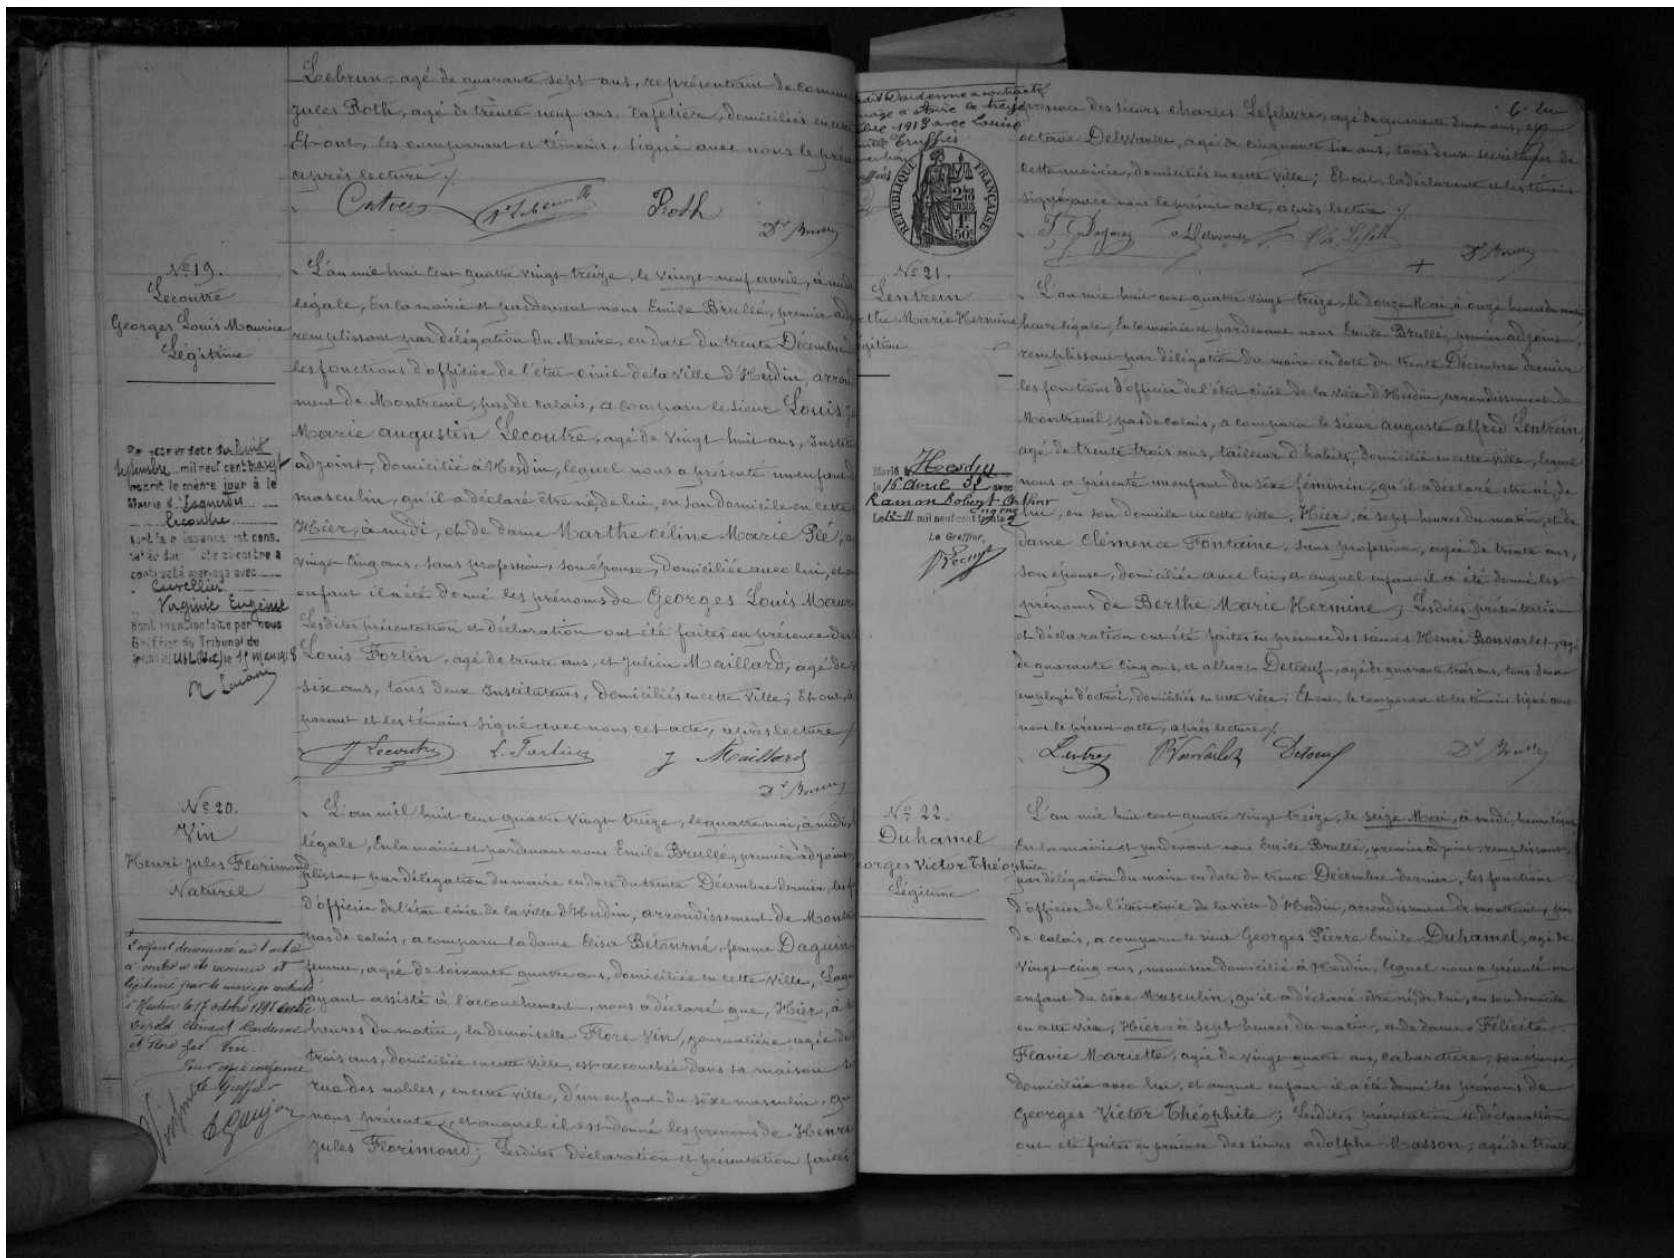 Lebrun, agé de quarante sept ans, représentant de comm
Jules Roth, agé de trente neuf ans, cafetier, domiciliés en cette
Et ont, les comparant et témoins, signé avec nous le prés
après lecture ./.
Roth
Dr Brullé
No 19.
Lecoutre
Georges Louis Maurice
Légitime
L'an mil huit cent quatre vingt treize, le vingt neuf avril, à midi
légale, En la mairie et par devant nous Emile Brullé, premier adj
remplissant par délégation du Maire, en date du trente Décembre
les fonctions d'officier de l'état-civil de la ville d'Hesdin, arron
ment de Montreuil, pas de calais, a comparu le sieur Louis
Marie augustin Lecoutre, agé de vingt huit ans, Instit
adjoint, domicilié à Hesdin, lequel nous a présenté un enfant d
masculin, qu'il a déclaré être né, de lui, en son domicile en cette
Hier, à midi, et de dame Marthe Céline Marie Pée,
vingt cinq ans, sans profession, son épouse, domiciliée avec lui, et
enfant il a été donné les prénoms de Georges Louis Maur
Lesdites présentation et déclaration ont été faites en présence des
Louis Fortin, agé de trente ans, et Julien Maillard, agé de
six ans, tous deux Instituteurs, domiciliés en cette ville; Et ont,
parant et les témoins signé avec nous cet acte, après lecture ./.
en date du huit
septembre mil neuf cent dix sept
inscrit le même jour à la
Mairie d'
Lecoutre
dont la naissance est cons
contracté mariage avec
Cuvellier
Virginie Eugénie
dont mention faite par nous
Greffier du Tribunal de
J Lecoutre L. Fortin J Maillard
Dr Brullé
No 20.
Vin
Henri Jules Florimond
Naturel
L'an mil huit cent quatre vingt treize, le quatre mai, à midi,
légale, En la mairie et par devant nous Emile Brullé, premier adjoint,
plissant par délégation du maire en date du trente Décembre dernier, les f
d'officier de l'état civil de la ville d'Hesdin, arrondissement de Mont
pas de calais, a comparu la dame Elisa Bétourné, femme Daquin
femme, agée de soixante quatre ans, domiciliée en cette ville, Laq
ayant assisté à l'accouchement, nous a déclaré que, Hier, à
heures du matin, la demoiselle Flore Vin, journalière, agée de
trois ans, domiciliée en cette ville, est accouchée dans sa maison
rue des nobles, en cette ville, d'un enfant du sexe masculin, qu
nous présente, et auquel il est donné les prénoms de Henri
Jules Florimond; Lesdites déclaration et présentation faites
L'enfant dénommé en l'acte
ci contre a été reconnu et
légitimé par le mariage contracté
à Hesdin le 17 octobre 1898 entre
Léopold Clément Dardenne
et Flore Vin.
Pour copie conforme
Le Greffier
Dardenne a contracté
mariage à le treize
1913 avec Louise
Truffier
RÉPUBLIQUE FRANÇAISE
présence des sieurs charles Lefebvre, agé de quarante deux ans, et
octave Delwaulle, agé de cinquante six ans, tous deux secrétaires de
cette mairie, domiciliés en cette ville; Et ont, la déclarante et les témoins
signé avec nous le présent acte, après lecture ./.
Dr Brullé
No 21.
Lentrein
rthe Marie Hermine
égitime
L'an mil huit cent quatre vingt treize, le douze Mai, à onze heures du matin
heure légale, En la mairie et par devant nous Emile Brullé, premier adjoint,
remplissant par délégation du maire en date du trente Décembre dernier
les fonctions d'officier de l'état civil de la ville d'Hesdin, arrondissement de
Montreuil, pas de calais, a comparu le sieur auguste alfred Lentrein,
agé de trente trois ans, tailleur d'habits, domicilié en cette ville, lequel
nous a présenté un enfant du sexe féminin, qu'il a déclaré être né, de
lui, en son domicile en cette ville, Hier, à sept heures du matin, et de
dame Clémence Fontaine, sans profession, agée de trente ans,
son épouse, domiciliée avec lui, et auquel enfant il a été donné les
prénoms de Berthe Marie Hermine; Lesdites présentation
et déclaration ont été faites en présence des sieurs Henri Bonvarlet, agé
de quarante cinq ans, et albert Detoeuf, agé de quarante trois ans, tous deux
employés d'octroi, domiciliés en cette ville; Et ont, le comparant et les témoins signé avec
nous le présent acte, après lecture ./.
Marié à Hesdin
le 15 avril 32 avec
Ramon Robert Arthur
Eugène
mil neuf cent trente 2
Le Greffier,
Bonvarlet Detoeuf Dr Brullé
No 22.
Duhamel
orges Victor Théophile
Légitime
L'an mil huit cent quatre vingt treize, le seize Mai, à midi, heure légale,
En la mairie et par devant nous Emile Brullé, premier adjoint, remplissant,
par délégation du maire en date du trente Décembre dernier, les fonctions
d'officier de l'état-civil de la ville d'Hesdin, arrondissement de montreuil, pas
de calais, a comparu le sieur Georges Pierre Emile Duhamel, agé de
vingt-cinq ans, menuisier domicilié à Hesdin, lequel nous a présenté un
enfant du sexe Masculin, qu'il a déclaré être né, de lui, en son domicile
en cette ville, Hier, à sept heures du matin, et de dame Félicité
Flavie Mariette, agée de vingt-quatre ans, cabaretière, son épouse,
domiciliée avec lui, et auquel enfant il a été donné les prénoms de
Georges Victor Théophile; Lesdites présentation et déclaration
ont été faites en présence des sieurs adolphe Masson, agé de trente